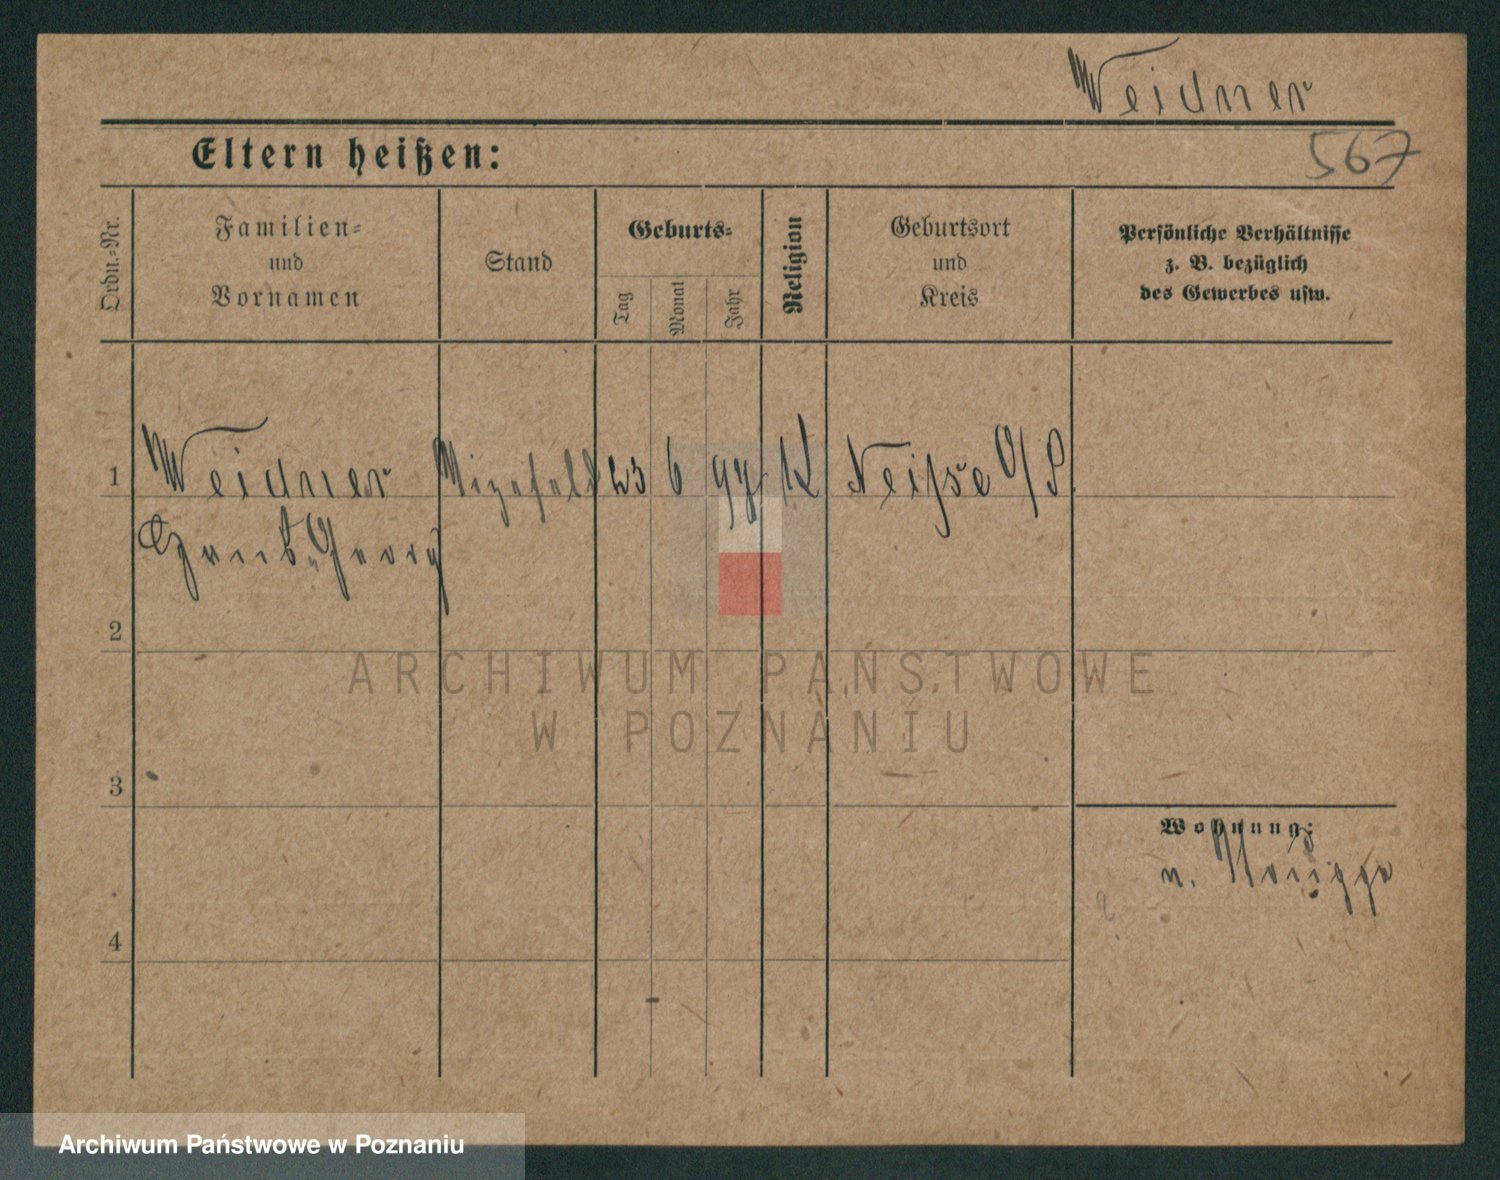 Weidner
567
Eltern heißen:
Ordn.-Nr.
Familien-
und
Vornamen
Stand
Geburts-
Tag
Monat
Jahr
Religion
Geburtsort
und
Kreis
Persönliche Verhältnisse
z. B. bezüglich
des Gewerbes usw.
1
Weidner
23 6 99 K Neisse O/S
Georg
2
3
4
Wohnung:
ARCHIWUM PAŃSTWOWE
W POZNANIU
Archiwum Państwowe w Poznaniu